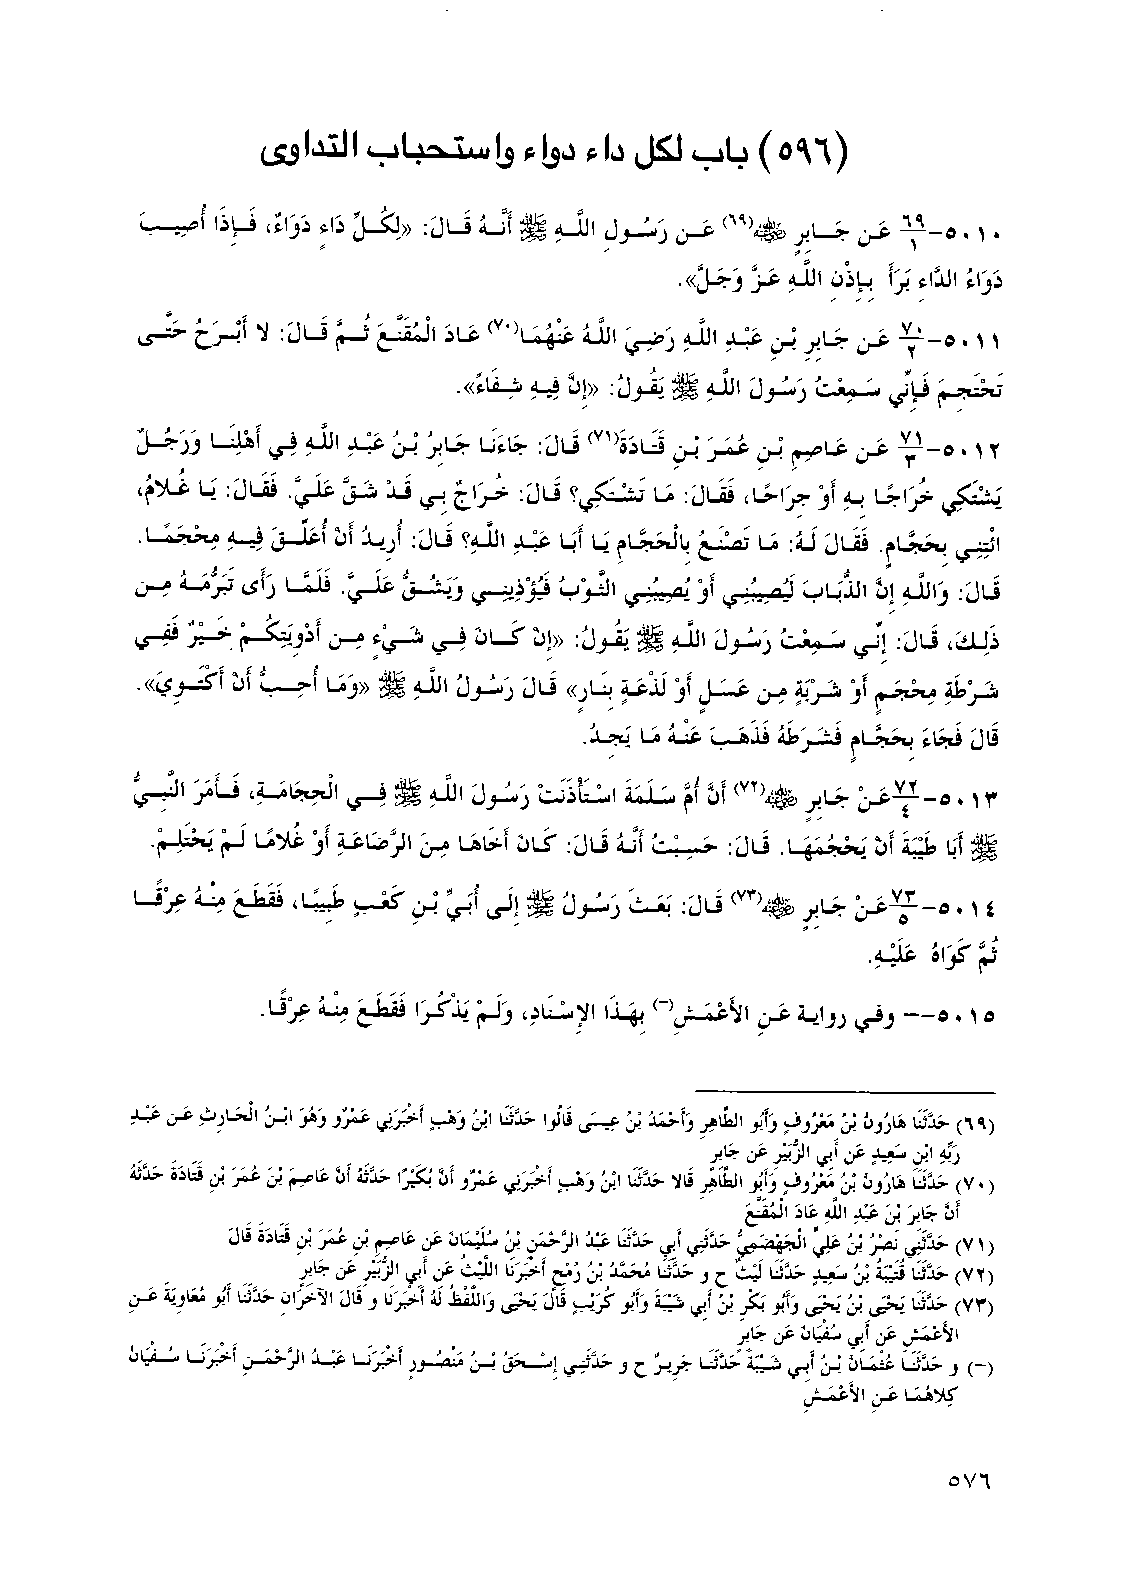 (٥٩٦) باب لكل داء دواء واستحباب التداوى
٥٠١٠-٦٩/١ عَن جَابِرٍ ﷺ(٦٩) عَن رَسُولِ اللَّهِ ﷺ أَنَّهُ قَالَ: «لِكُلِّ دَاءٍ دَوَاءٌ، فَإِذَا أُصِيبَ
دَوَاءُ الدَّاءِ بَرَأَ بِإِذْنِ اللَّهِ عَزَّ وَجَلَّ».
٥٠١١-٧٠/٢ عَن جَابِرِ بْنِ عَبْدِ اللَّهِ رَضِيَ اللَّهُ عَنْهُمَا(٧٠) عَادَ الْمُقَنَّعَ ثُمَّ قَالَ: لا أَبْرَحُ حَتَّى
تَحْتَجِمَ فَإِنِّي سَمِعْتُ رَسُولَ اللَّهِ ﷺ يَقُولُ: «إِنَّ فِيهِ شِفَاءً».
٥٠١٢-٧١/٣ عَن عَاصِمِ بْنِ عُمَرَ بْنِ قَتَادَةَ(٧١) قَالَ: جَاءَنَا جَابِرُ بْنُ عَبْدِ اللَّهِ فِي أَهْلِنَا وَرَجُلٌ
يَشْتَكِي خُرَاجًا بِهِ أَوْ جِرَاحًا، فَقَالَ: مَا تَشْتَكِي؟ قَالَ: خُرَاجٌ بِي قَدْ شَقَّ عَلَيَّ. فَقَالَ: يَا غُلامُ،
ائْتِنِي بِحَجَّامٍ. فَقَالَ لَهُ: مَا تَصْنَعُ بِالْحَجَّامِ يَا أَبَا عَبْدِ اللَّهِ؟ قَالَ: أُرِيدُ أَنْ أُعَلِّقَ فِيهِ مِحْجَمًا.
قَالَ: وَاللَّهِ إِنَّ الذُّبَابَ لَيُصِيبُنِي أَوْ يُصِيبُنِي الثَّوْبُ فَيُؤْذِينِي وَيَشُقُّ عَلَيَّ. فَلَمَّا رَأَى تَبَرُّمَهُ مِن
ذَلِكَ، قَالَ: إِنِّي سَمِعْتُ رَسُولَ اللَّهِ ﷺ يَقُولُ: «إِنْ كَانَ فِي شَيْءٍ مِن أَدْوِيَتِكُمْ خَيْرٌ فَفِي
شَرْطَةِ مِحْجَمٍ أَوْ شَرْبَةٍ مِن عَسَلٍ أَوْ لَذْعَةٍ بِنَارٍ» قَالَ رَسُولُ اللَّهِ ﷺ «وَمَا أُحِبُّ أَنْ أَكْتَوِيَ».
قَالَ فَجَاءَ بِحَجَّامٍ فَشَرَطَهُ فَذَهَبَ عَنْهُ مَا يَجِدُ.
٥٠١٣-٧٢/٤ عَنْ جَابِرٍ ﷺ(٧٢) أَنَّ أُمَّ سَلَمَةَ اسْتَأْذَنَتْ رَسُولَ اللَّهِ ﷺ فِي الْحِجَامَةِ، فَأَمَرَ النَّبِيُّ
ﷺ أَبَا طَيْبَةَ أَنْ يَحْجُمَهَا. قَالَ: حَسِبْتُ أَنَّهُ قَالَ: كَانَ أَخَاهَا مِنَ الرَّضَاعَةِ أَوْ غُلامًا لَمْ يَحْتَلِمْ.
٥٠١٤-٧٣/٥ عَنْ جَابِرٍ ﷺ(٧٣) قَالَ: بَعَثَ رَسُولُ ﷺ إِلَى أُبَيِّ بْنِ كَعْبٍ طَبِيبًا، فَقَطَعَ مِنْهُ عِرْقًا
ثُمَّ كَوَاهُ عَلَيْهِ.
٥٠١٥-- وفي رواية عَنِ الأَعْمَشِ(-) بِهَذَا الإِسْنَادِ، وَلَمْ يَذْكُرَا فَقَطَعَ مِنْهُ عِرْقًا.
(٦٩) حَدَّثَنَا هَارُونُ بْنُ مَعْرُوفٍ وَأَبُو الطَّاهِرِ وَأَحْمَدُ بْنُ عِيسَى قَالُوا حَدَّثَنَا ابْنُ وَهْبٍ أَخْبَرَنِي عَمْرٌو وَهُوَ ابْنُ الْحَارِثِ عَن عَبْدِ
رَبِّهِ ابْنِ سَعِيدٍ عَن أَبِي الزُّبَيْرِ عَن جَابِرٍ
(٧٠) حَدَّثَنَا هَارُونُ بْنُ مَعْرُوفٍ وَأَبُو الطَّاهِرِ قَالا حَدَّثَنَا ابْنُ وَهْبٍ أَخْبَرَنِي عَمْرٌو أَنَّ بُكَيْرًا حَدَّثَهُ أَنَّ عَاصِمَ بْنَ عُمَرَ بْنِ قَتَادَةَ حَدَّثَهُ
أَنَّ جَابِرَ بْنَ عَبْدِ اللَّهِ عَادَ الْمُقَنَّعَ
(٧١) حَدَّثَنِي نَصْرُ بْنُ عَلِيٍّ الْجَهْضَمِيُّ حَدَّثَنِي أَبِي حَدَّثَنَا عَبْدُ الرَّحْمَنِ بْنُ سُلَيْمَانَ عَن عَاصِمِ بْنِ عُمَرَ بْنِ قَتَادَةَ قَالَ
(٧٢) حَدَّثَنَا قُتَيْبَةُ بْنُ سَعِيدٍ حَدَّثَنَا لَيْثٌ ح و حَدَّثَنَا مُحَمَّدُ بْنُ رُمْحٍ أَخْبَرَنَا اللَّيْثُ عَن أَبِي الزُّبَيْرِ عَن جَابِرٍ
(٧٣) حَدَّثَنَا يَحْيَى بْنُ يَحْيَى وَأَبُو بَكْرِ بْنُ أَبِي شَيْبَةَ وَأَبُو كُرَيْبٍ قَالَ يَحْيَى وَاللَّفْظُ لَهُ أَخْبَرَنَا و قَالَ الآخَرَانِ حَدَّثَنَا أَبُو مُعَاوِيَةَ عَن
الأَعْمَشِ عَن أَبِي سُفْيَانَ عَن جَابِرٍ
(-) و حَدَّثَنَا عُثْمَانُ بْنُ أَبِي شَيْبَةَ حَدَّثَنَا جَرِيرٌ ح و حَدَّثَنِي إِسْحَقُ بْنُ مَنْصُورٍ أَخْبَرَنَا عَبْدُ الرَّحْمَنِ أَخْبَرَنَا سُفْيَانُ
كِلاهُمَا عَنِ الأَعْمَشِ
٥٧٦